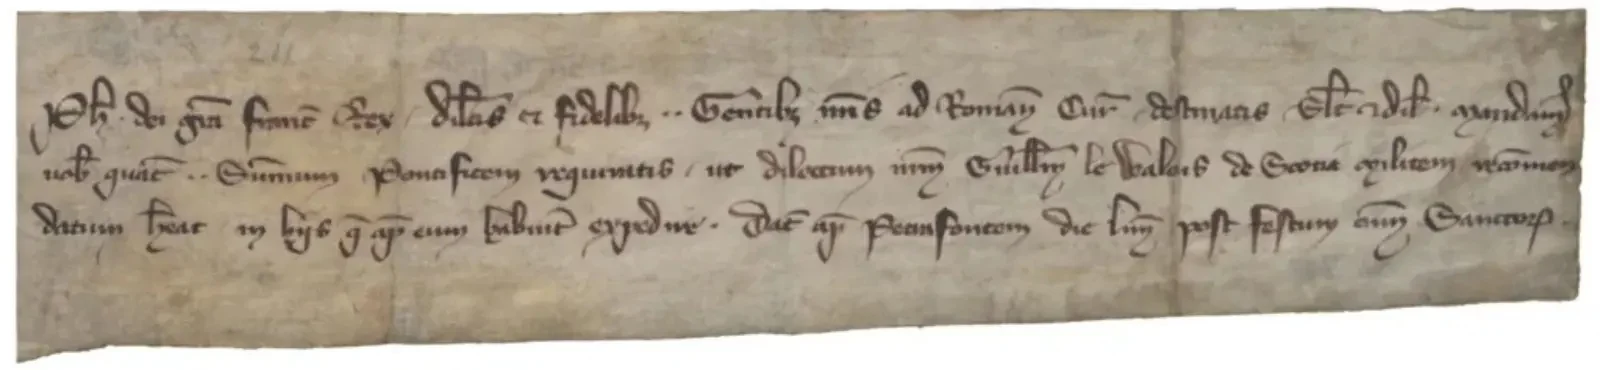 Ph. dei gra franc Rex, dilcis et fidelibz .. Gentibz nris ad Romam Cur destinatis Slt et dil. Mandam
vob quat .. Summum Pontificem requiratis, ut dilectum nrm Guillm le Walois de Scotia Militem recomen
datum heat in hijs q ap eum habuit expedire. Dat ap Petrafontem die lun post festum omm Sanctor.